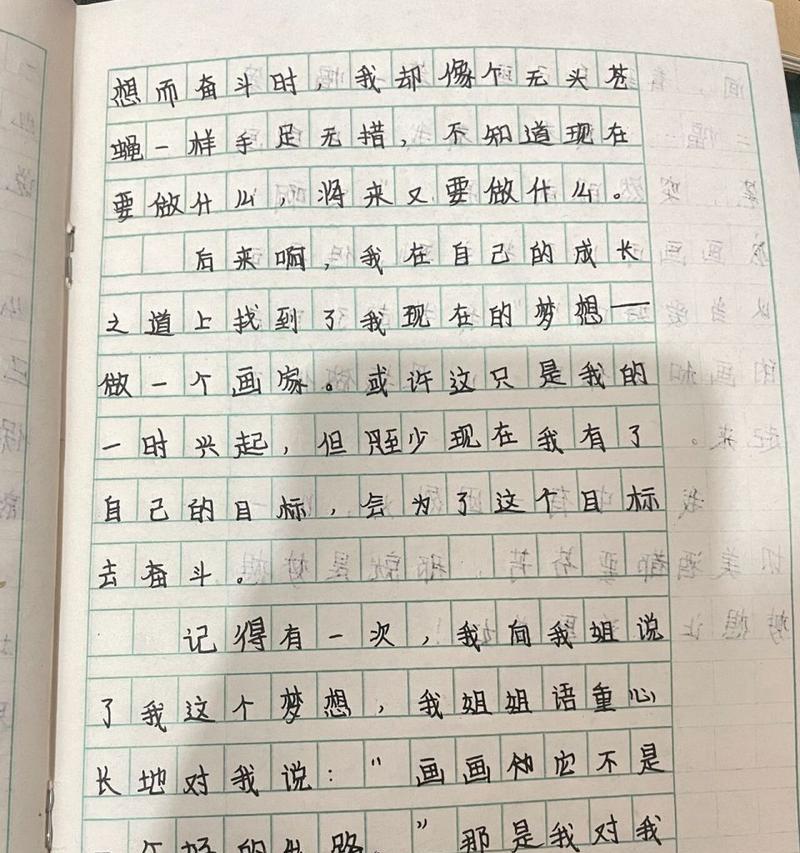 想而奋斗时，我却像个无头苍
蝇一样手足无措，不知道现在
要做什么，将来又要做什么。
后来啊，我在自己的成长
之道上找到了我现在的梦想——
做一个画家。或许这只是我的
一时兴起，但至少现在我有了
自己的目标，会为了这个目标
去奋斗。
记得有一次，我向我姐说
了我这个梦想，我姐姐语重心
长地对我说：“画画他它不是
一个好的出路。”那是我对我